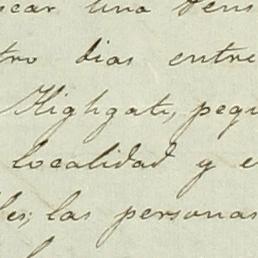 scar una pens
tro dias entre
Highgate, pequ
localidad y e
les; las personas